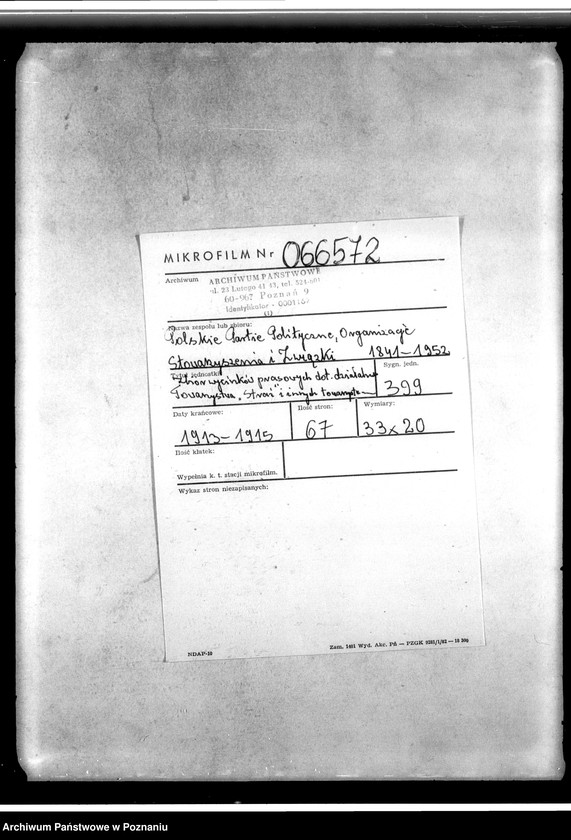 MIKROFILM Nr 066572
Archiwum
ARCHIWUM PAŃSTWOWE
ul. 23 Lutego 41/43, tel. 524-601
60-967 Poznań 9
Identyfikator - 0001167
(1)
Nazwa zespołu lub zbioru:
Polskie Partie Polityczne, Organizacje
Stowarzyszenia i Związki 1841-1952
Tytuł jednostki
Sygn. jedn.
Zbiór wycinków prasowych dot. działaln.
Towarzystwa „Straż" i innych towarzystw
399
Daty krańcowe:
Ilość stron:
Wymiary:
1913-1915
67
33x20
Ilość klatek:
Wypełnia k. t. stacji mikrofilm.
Wykaz stron niezapisanych:
NDAP-20
Zam. 1401 Wyd. Akc. Pń — PZGK
Archiwum Państwowe w Poznaniu